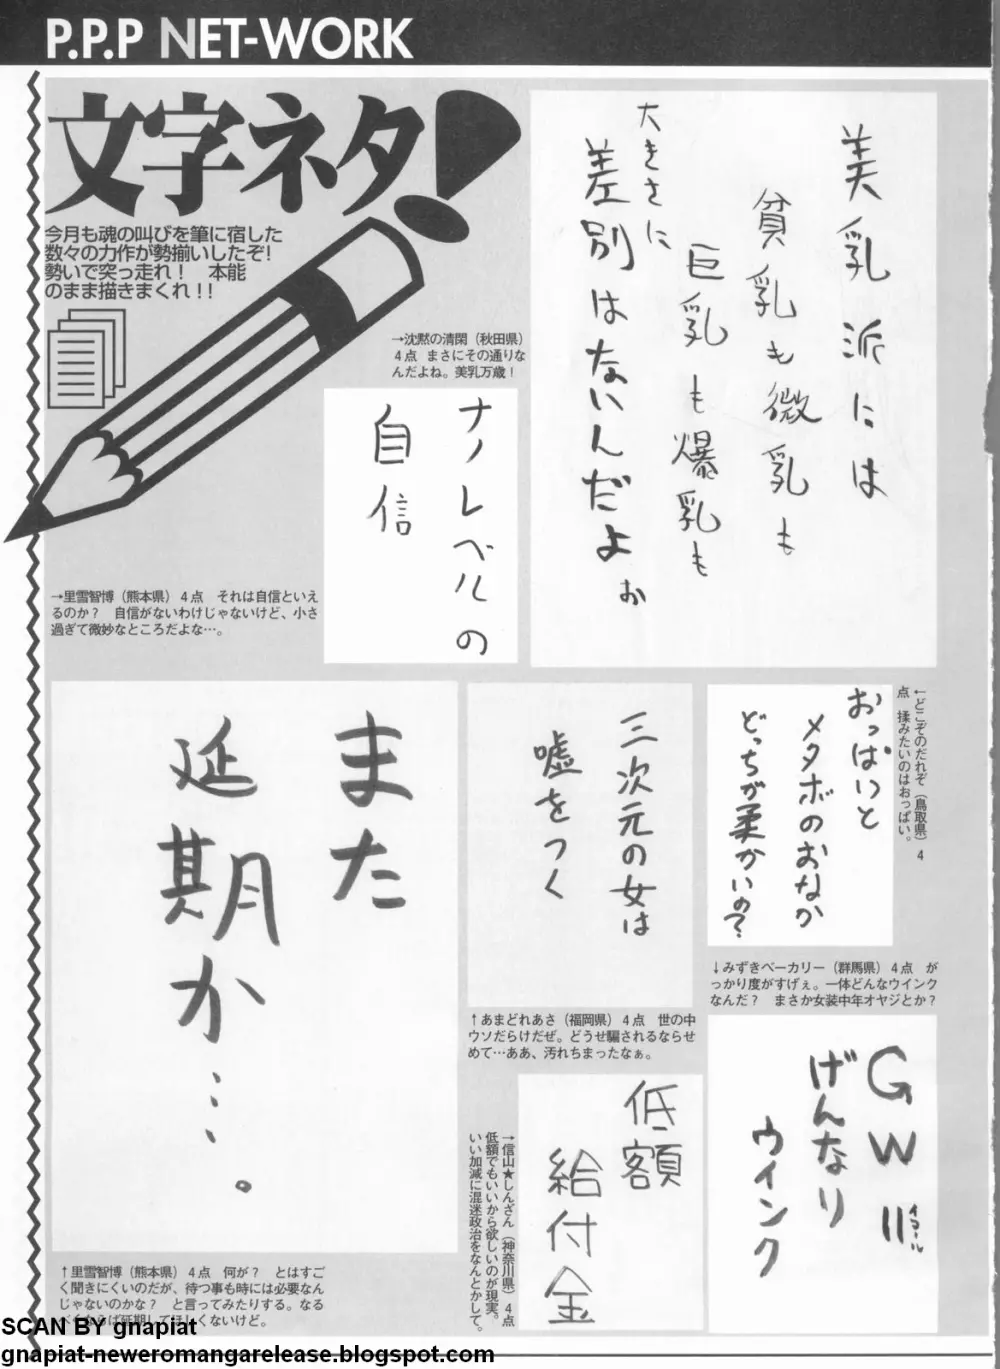 P.P.P NET-WORK
文字ネタ!
今月も魂の叫びを筆に宿した
数々の力作が勢揃いしたぞ!
勢いで突っ走れ! 本能
のまま描きまくれ!!
美乳派には
貧乳も微乳も
巨乳も爆乳も
大きさに
差別はないんだよぉ
→沈黙の清閑(秋田県)
4点 まさにその通りな
んだよね。美乳万歳!
ナノレベルの
自信
→里雪智博(熊本県)4点 それは自信といえ
るのか? 自信がないわけじゃないけど、小さ
過ぎて微妙なところだよな…。
おっぱいと
メタボのおなか
どっちが柔かいの?
←どこぞのだれぞ(鳥取県)4
点 揉みたいのはおっぱい。
三次元の女は
嘘をつく
↑あまどれあさ(福岡県)4点 世の中
ウソだらけだぜ。どうせ騙されるならせ
めて…ああ、汚れちまったなぁ。
また
延期か…。
↑里雪智博(熊本県)4点 何が? とはすご
く聞きにくいのだが、待つ事も時には必要なん
じゃないのかな? と言ってみたりする。なる
べくならば延期してほしくないけど。
↓みずきベーカリー(群馬県)4点 が
っかり度がすげぇ。一体どんなウインク
なんだ? まさか女装中年オヤジとか?
GW=
イコール
げんなり
ウインク
低額
給付金
→信山★しんざん(神奈川県)4点
低額でもいいから欲しいのが現実。
いい加減に混迷政治をなんとかして。
SCAN BY gnapiat
gnapiat-neweromangarelease.blogspot.com